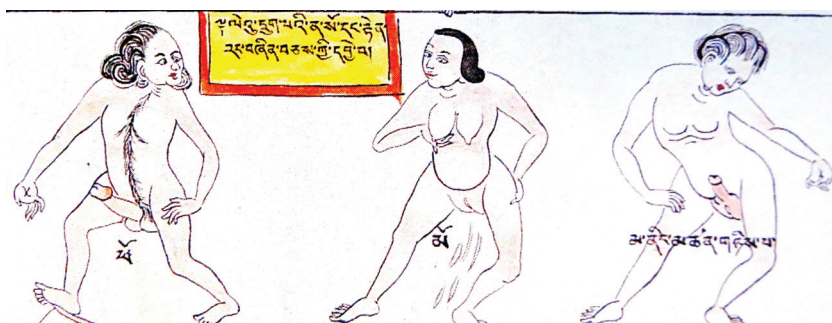 ༈ ལེའུ་དྲུག་པའི་ན་སོ་དང་རྟེན་
རང་བཞིན་བཅས་ཀྱི་དབྱེ་བ།
ཕོ
མོ
མ་ནིང་མཚན་གཉིས་པ་